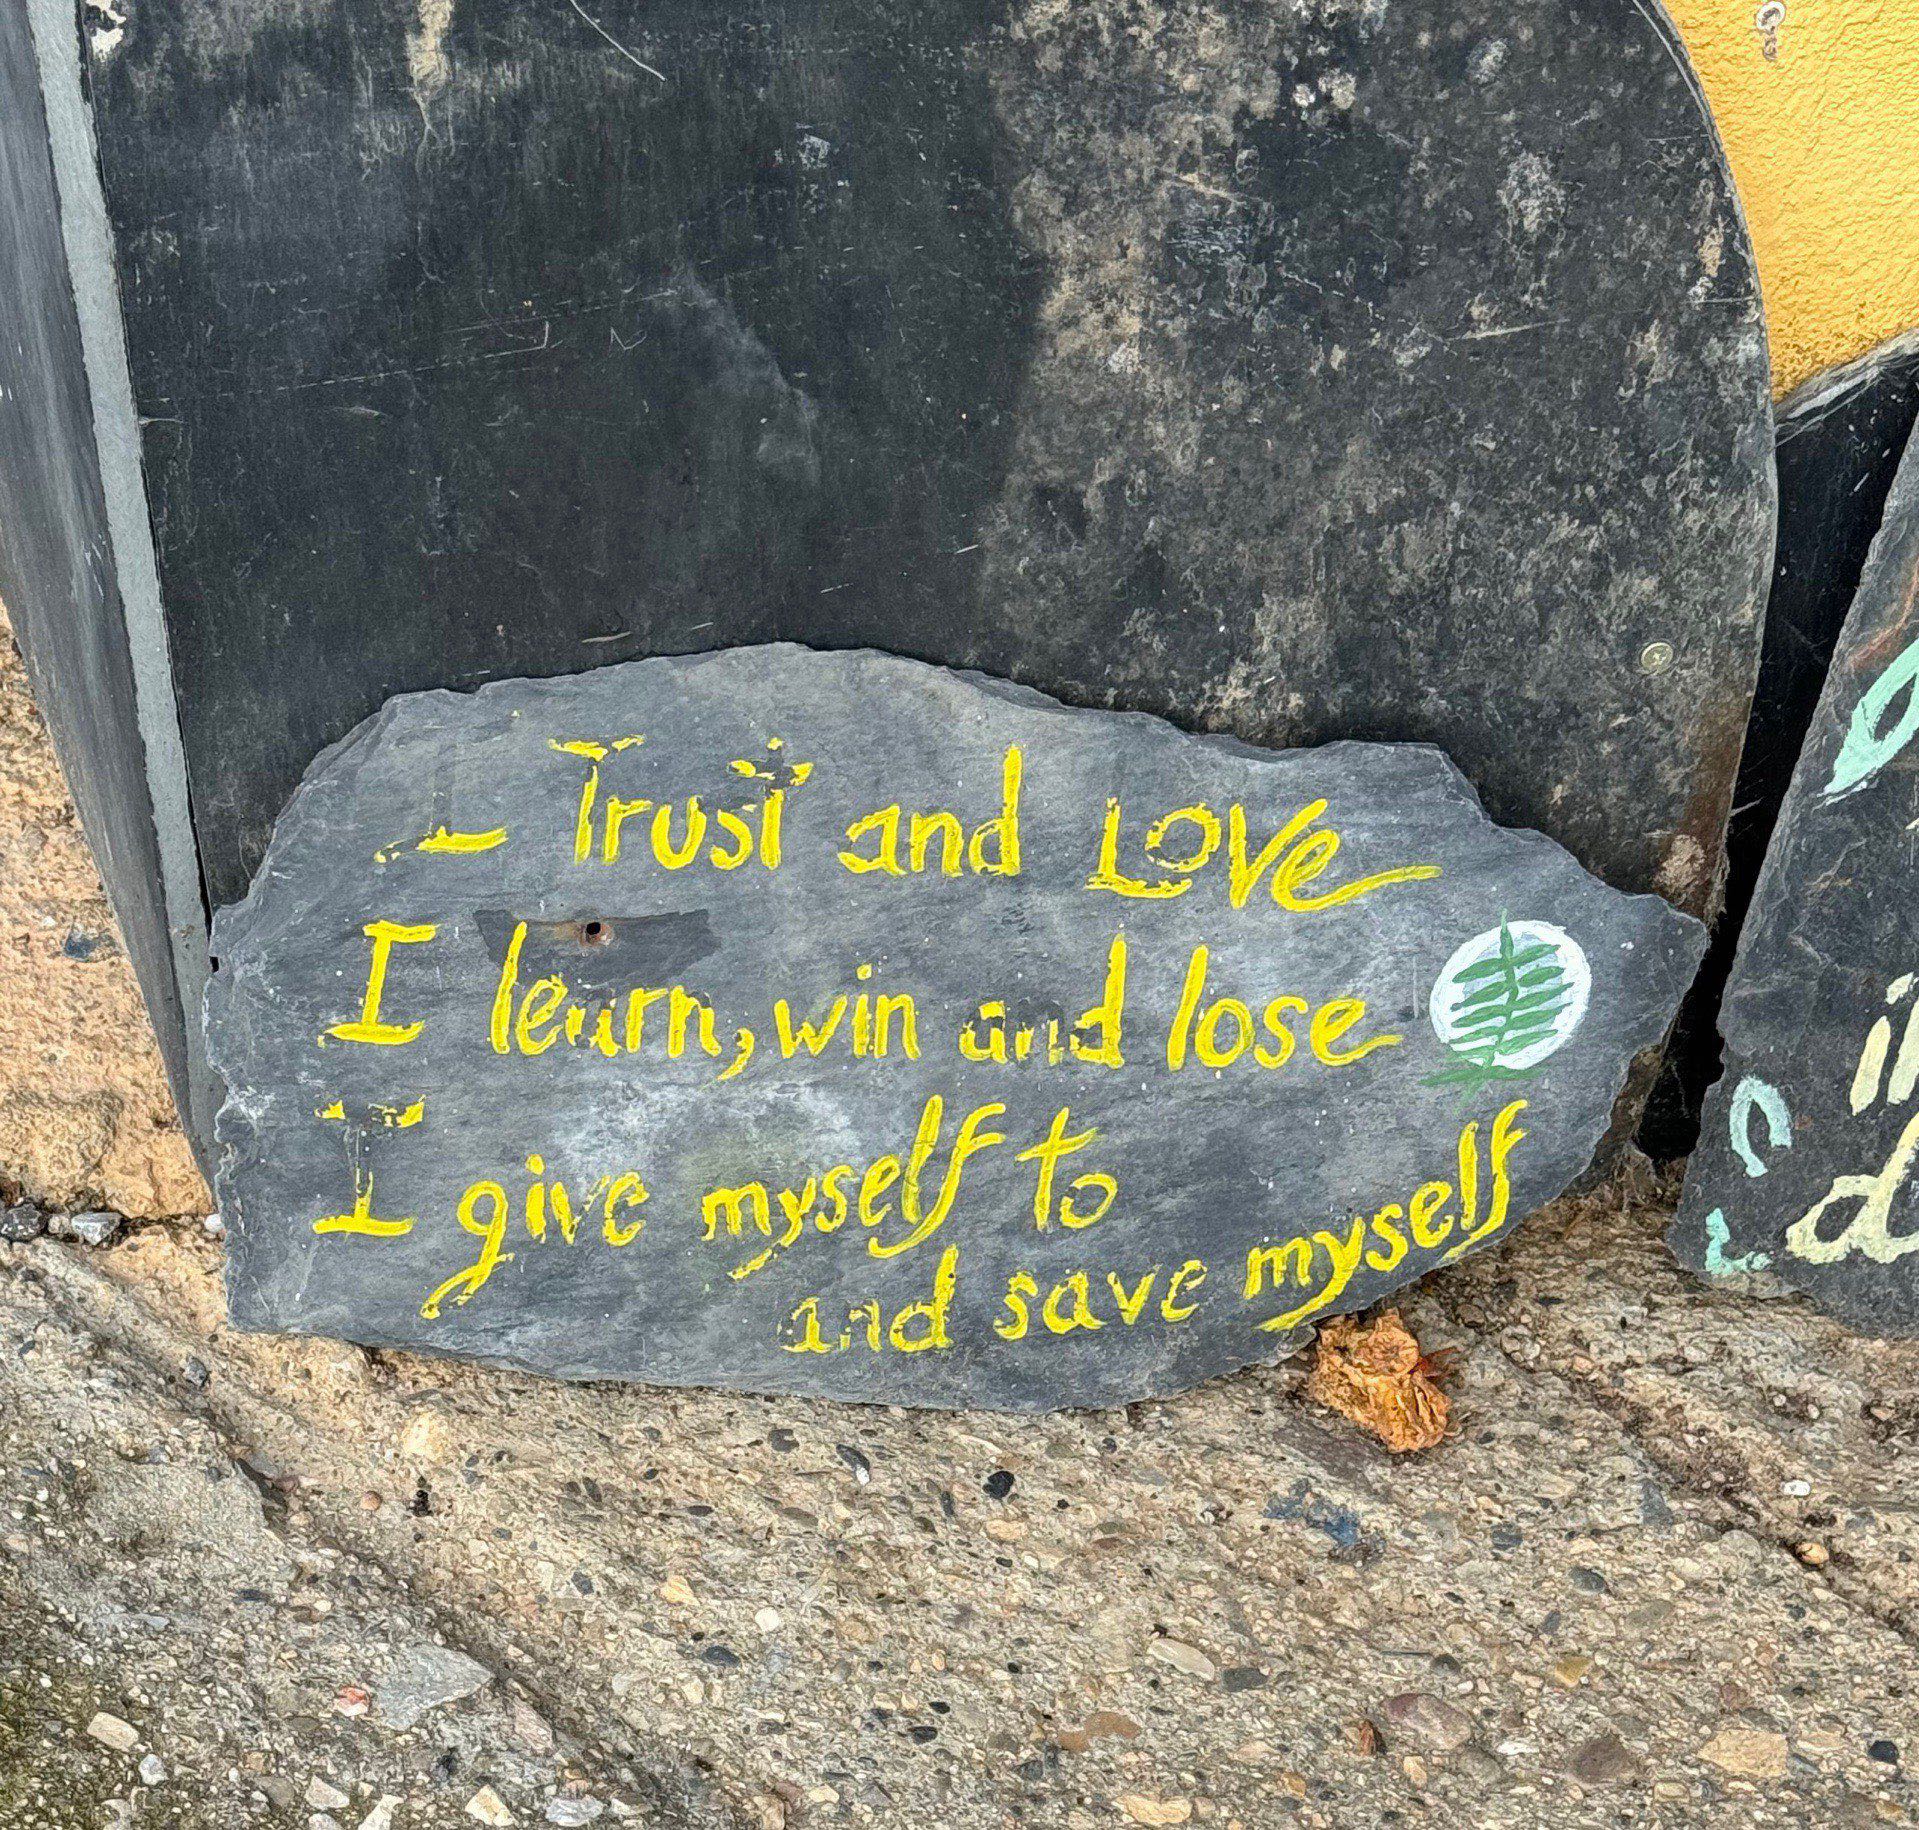 I Trust and Love
I learn, win and lose
I give myself to
and save myself